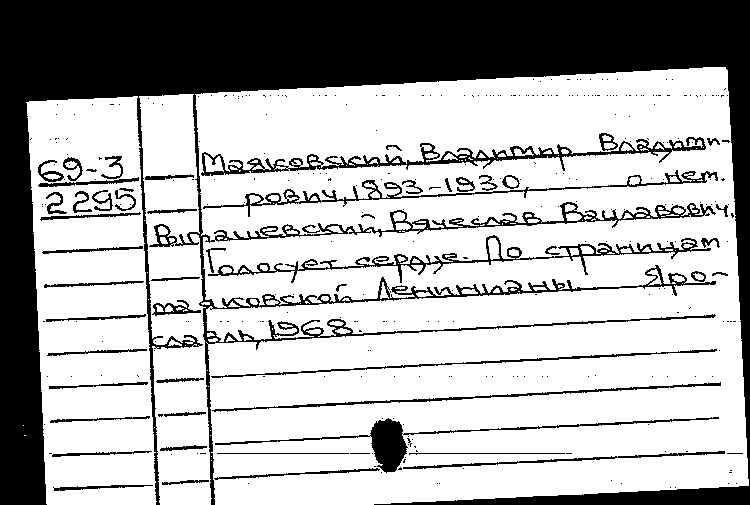 69-3
2295
Маяковский, Владимир Владими-
рович, 1893-1930, о нем.
Вячеслав Вацлавович.
Голосует сердце. По страницам
маяковской Ленинианы. Яро-
славль, 1968.